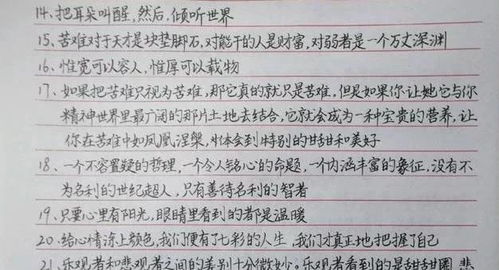 14、把耳朵叫醒，然后，倾听世界
15、苦难对于天才是块垫脚石，对能干的人是财富，对弱者是一个万丈深渊
16、惟宽可以容人，惟厚可以载物
17、如果把苦难只视为苦难，那它真的就只是苦难，但是如果你让她它与你
精神世界里最广阔的那片土地去结合，它就会成为一种宝贵的营养，让
你在苦难中如凤凰涅槃，体会到特别的甘甜和美好
18、一个不容置疑的哲理，一个令人铭心的命题，一个内涵丰富的象征，没有不
为名利的世纪超人，只有善待名利的智者
19、只要心里有阳光，眼睛里看到的都是温暖
20、给心情涂上颜色，我们便有了七彩的人生，我们才真正地把握了自己
21、乐观者和悲观者之间的差别十分微妙。乐观者看到的是甜甜圈，悲